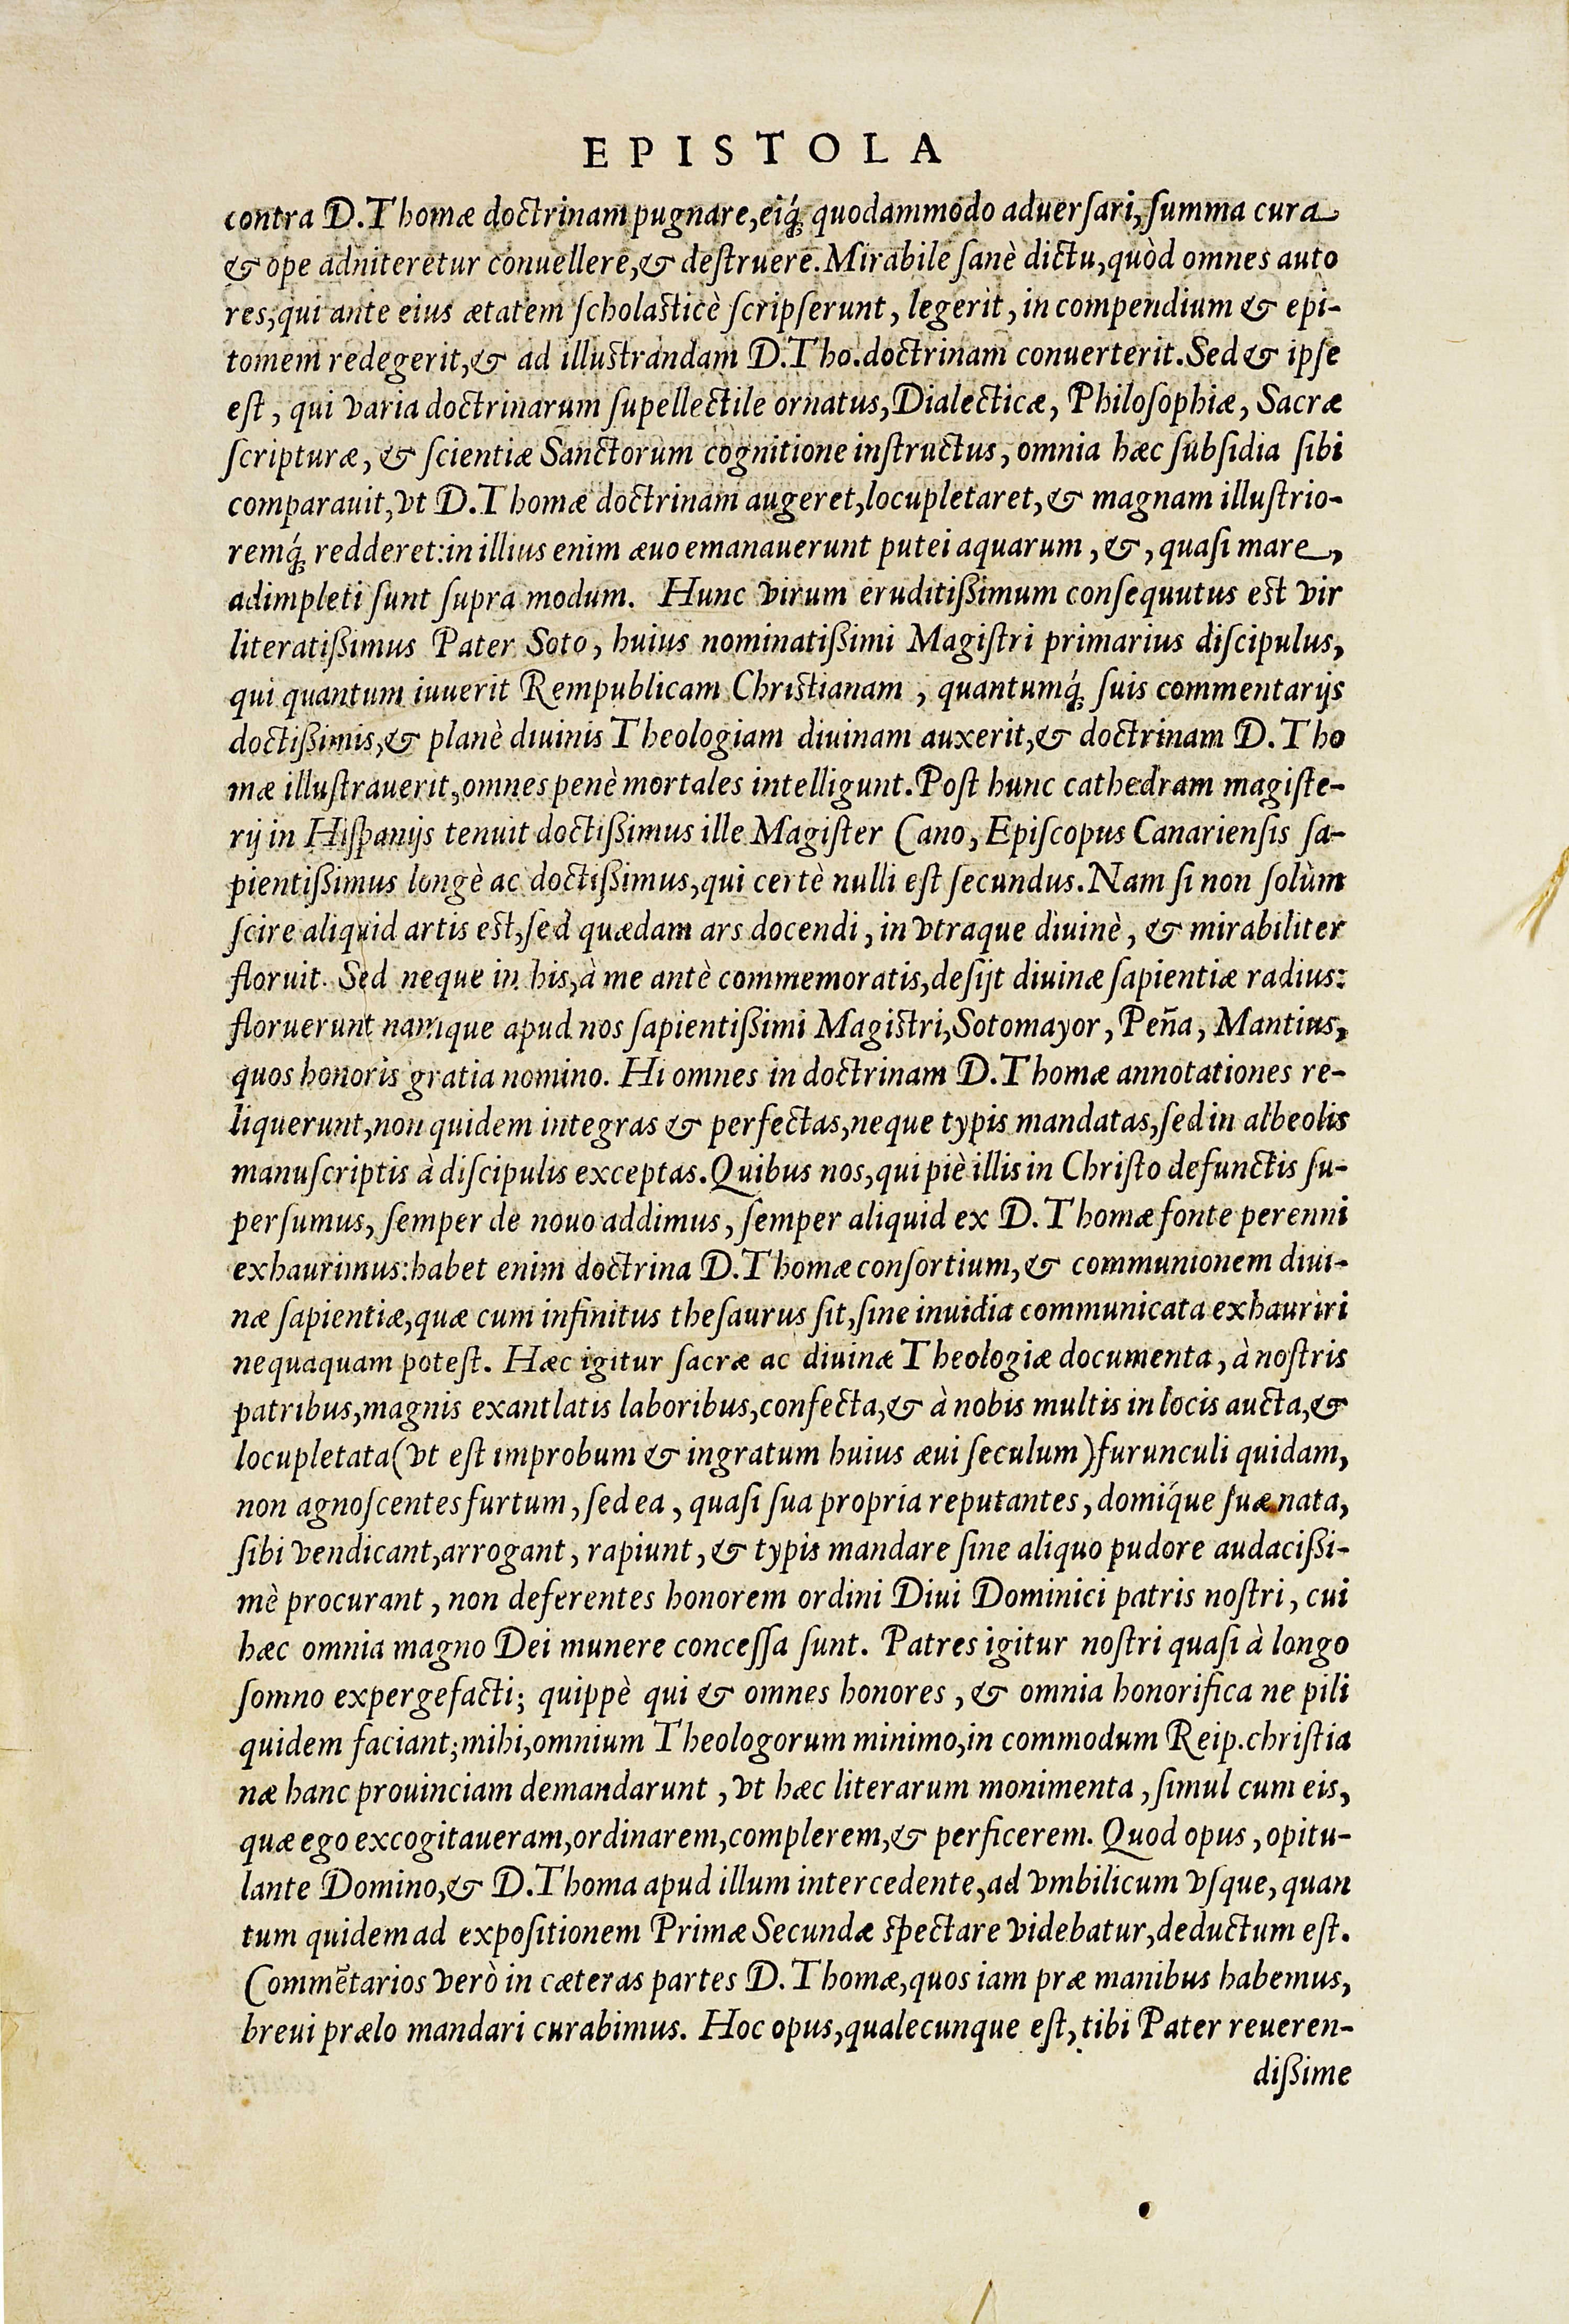 EPISTOLA
contra D. Thomæ doctrinam pugnare, eiq́; quodammodo aduersari, summa cura
& ope adniteretur conuellere, & destruere. Mirabile sanè dictu, quòd omnes auto
res, qui ante eius ætatem scholasticè scripserunt, legerit, in compendium & epi-
tomem redegerit, & ad illustrandam D. Tho. doctrinam conuerterit. Sed & ipse
est, qui varia doctrinarum supellectile ornatus, Dialecticæ, Philosophiæ, Sacræ
scripturæ, & scientiæ Sanctorum cognitione instructus, omnia hæc subsidia sibi
comparauit, vt D. Thomæ doctrinam augeret, locupletaret, & magnam illustrio-
remq́; redderet: in illius enim æuo emanauerunt putei aquarum, &, quasi mare,
adimpleti sunt supra modum. Hunc virum eruditißimum consequutus est vir
literatißimus Pater Soto, huius nominatißimi Magistri primarius discipulus,
qui quantum iuuerit Rempublicam Christianam, quantumq́; suis commentarijs
doctißimis, & planè diuinis Theologiam diuinam auxerit, & doctrinam D. Tho
mæ illustrauerit, omnes penè mortales intelligunt. Post hunc cathedram magiste-
rij in Hispanijs tenuit doctißimus ille Magister Cano, Episcopus Canariensis sa-
pientißimus longè ac doctißimus, qui certè nulli est secundus. Nam si non solùm
scire aliquid artis est, sed quædam ars docendi, in vtraque diuinè, & mirabiliter
floruit. Sed neque in his, à me antè commemoratis, desijt diuinæ sapientiæ radius:
floruerunt namque apud nos sapientißimi Magistri, Sotomayor, Peña, Mantius,
quos honoris gratia nomino. Hi omnes in doctrinam D. Thomæ annotationes re-
liquerunt, non quidem integras & perfectas, neque typis mandatas, sed in albeolis
manuscriptis à discipulis exceptas. Quibus nos, qui piè illis in Christo defunctis su-
persumus, semper de nouo addimus, semper aliquid ex D. Thomæ fonte perenni
exhaurimus: habet enim doctrina D. Thomæ consortium, & communionem diui-
næ sapientiæ, quæ cum infinitus thesaurus sit, sine inuidia communicata exhauriri
nequaquam potest. Hæc igitur sacræ ac diuinæ Theologiæ documenta, à nostris
patribus, magnis exantlatis laboribus, confecta, & à nobis multis in locis aucta, &
locupletata (vt est improbum & ingratum huius æui seculum) furunculi quidam,
non agnoscentes furtum, sed ea, quasi sua propria reputantes, domíque suæ nata,
sibi vendicant, arrogant, rapiunt, & typis mandare sine aliquo pudore audacißi-
mè procurant, non deferentes honorem ordini Diui Dominici patris nostri, cui
hæc omnia magno Dei munere concessa sunt. Patres igitur nostri quasi à longo
somno expergefacti; quippè qui & omnes honores, & omnia honorifica ne pili
quidem faciant; mihi, omnium Theologorum minimo, in commodum Reip. christia
næ hanc prouinciam demandarunt, vt hæc literarum monimenta, simul cum eis,
quæ ego excogitaueram, ordinarem, complerem, & perficerem. Quod opus, opitu-
lante Domino, & D. Thoma apud illum intercedente, ad vmbilicum vsque, quan
tum quidem ad expositionem Primæ Secundæ spectare videbatur, deductum est.
Commẽtarios verò in cæteras partes D. Thomæ, quos iam præ manibus habemus,
breui prælo mandari curabimus. Hoc opus, qualecunque est, tibi Pater reueren-
dißime